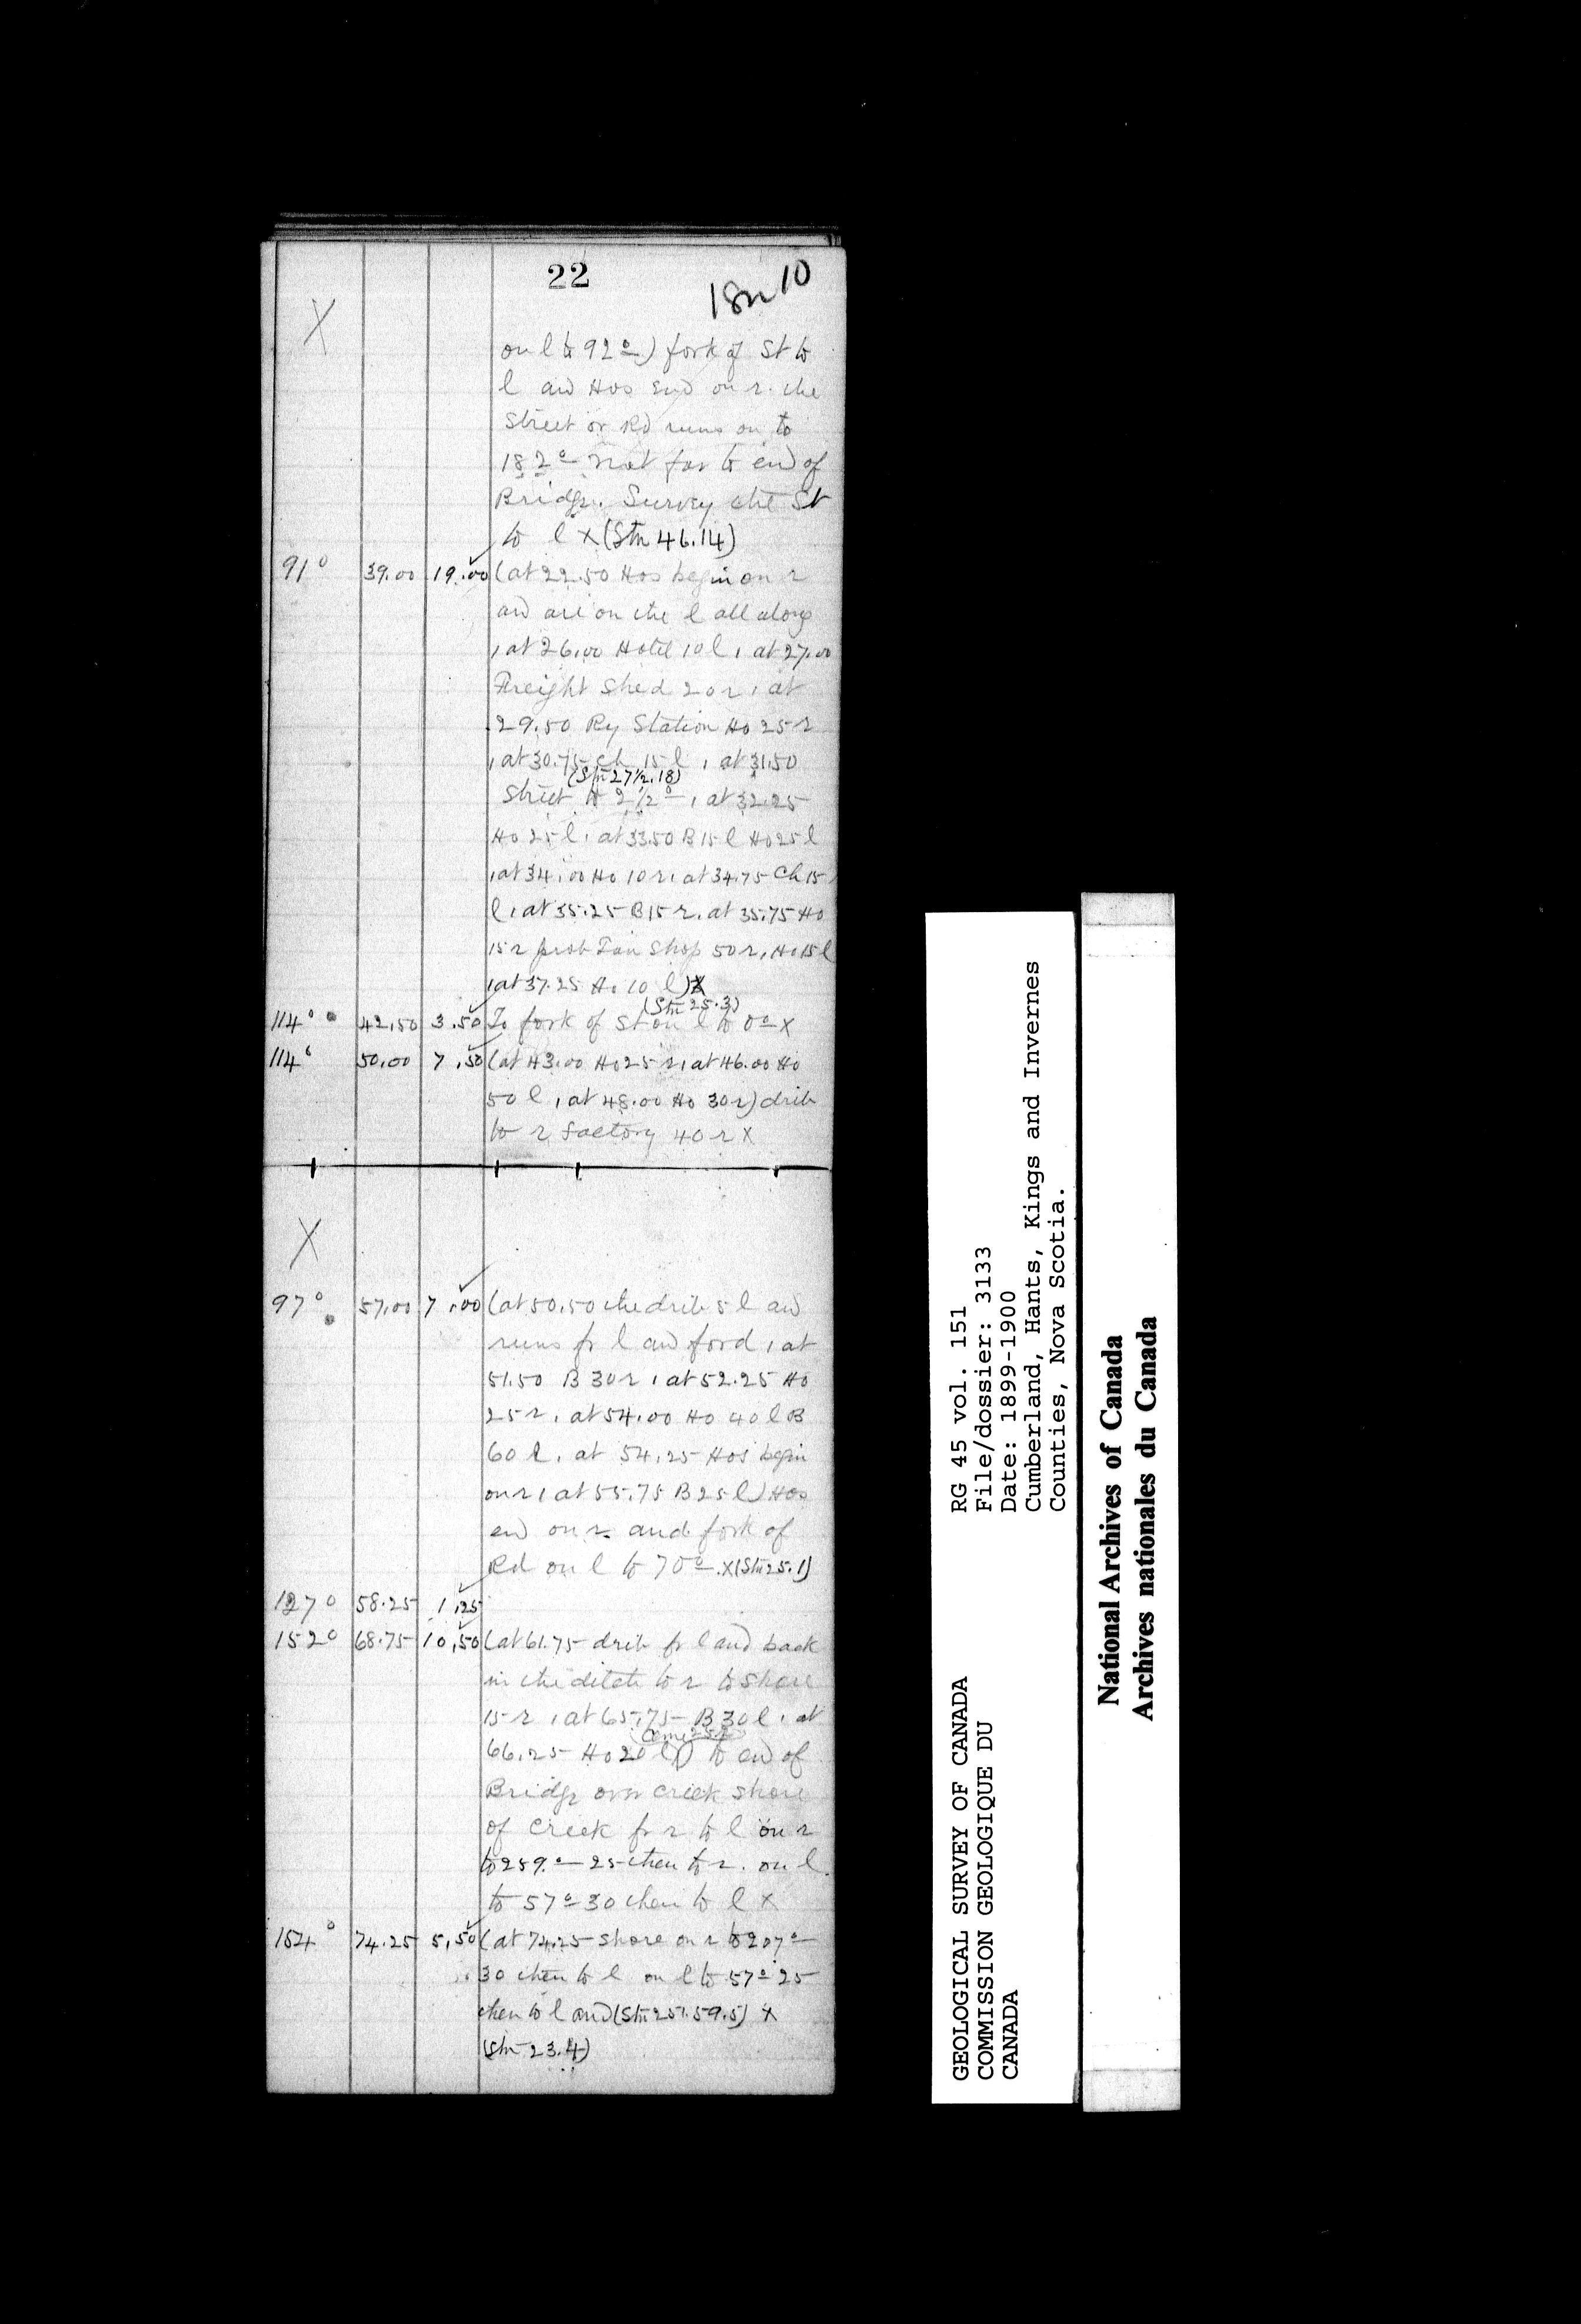 22
18n10
X
on l to 92°) fork of St to
l and Hos end on r. the
Street or Rd runs on to
182° not far to end of
Bridge. Survey the St
to l X (Stn 46.14)
91° 39.00 19.00 (at 22.50 Hos begin on r
and are on the l all along
, at 26.00 Hotel 10 l, at 27.00
Freight Shed 20 r, at
29.50 Ry Station Ho 25 r
, at 30.75 Ch 15 l, at 31.50
(Stn 27½.18)
Street to 2½°, at 32.25
Ho 25 l, at 33.50 B 15 l Ho 25 l
, at 34.00 Ho 10 r, at 34.75 Ch 15
l, at 35.25 B 15 r, at 35.75 Ho
15 r prob Tan Shop 50 r, Ho 15 l
, at 37.25 Ho 10 l) X
(Stn 25.3)
114° 42.50 3.50 To fork of St on l to 0° X
114° 50.00 7.50 (at 43.00 Ho 25 r, at 46.00 Ho
50 l, at 48.00 Ho 30 r) drib
to r factory 40 r X
X
97° 57.00 7.00 (at 50.50 the drib 5 l and
runs fr l and ford, at
51.50 B 30 r, at 52.25 Ho
25 r, at 54.00 Ho 40 l B
60 l, at 54.25 Hos begin
on r, at 55.75 B 25 l) Hos
end on r and fork of
Rd on l to 70° X (Stn 25.1)
127° 58.25 1.25
152° 68.75 10.50 (at 61.75 drib fr l and back
in the ditch to r to shore
15 r, at 65.75 B 30 l, at
66.25 Ho 20 l) to end of
Bridge over creek shore
of creek fr r to l on r
to 259° 25 then to r. on l
to 57° 30 then to l X
154° 74.25 5.50 (at 74.25 shore on r to 207°
30 then to l on l to 57° 25
then to l and (Stn 251.59.5) X
(Stn 23.4)
RG 45 vol. 151
File/dossier: 3133
Date: 1899-1900
Cumberland, Hants, Kings and Invernes
Counties, Nova Scotia.
GEOLOGICAL SURVEY OF CANADA
COMMISSION GEOLOGIQUE DU
CANADA
National Archives of Canada
Archives nationales du Canada